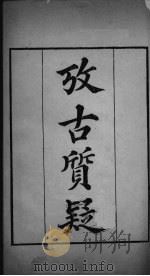 攷古質疑
mtoou.info